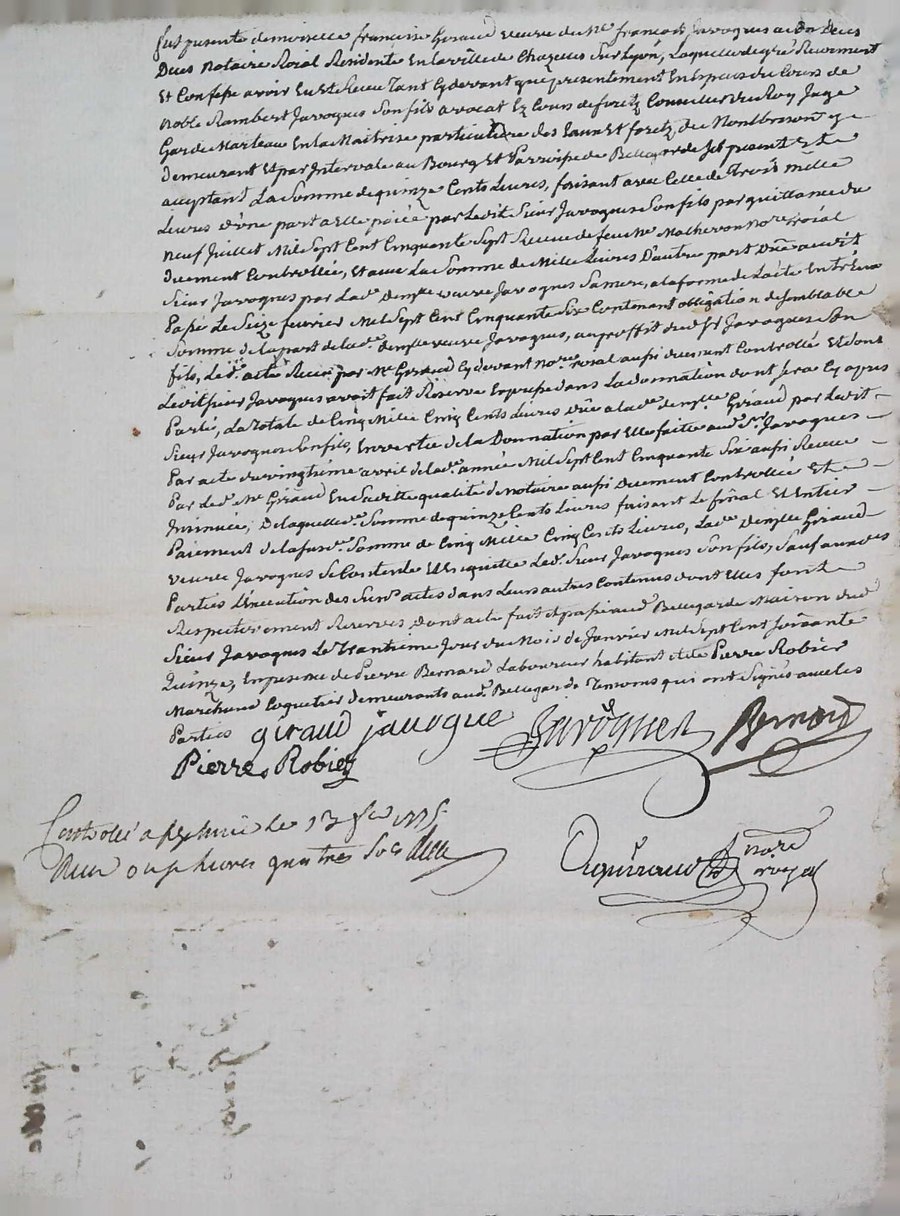 fut presente demoiselle francoise Giraud veuve de Me francois Javogues
Dues Notaire Roial Residente En la ville de Chazelles Sur Lyon, Laquelle de gré
Et Confesse avoir Eu et Receu Tant Cydevant que presentement En Espèces du Cours de
noble Rambert Javogues Son fils avocat Es Cours de foretz Conseiller du Roy Juge
Garde Marteau En la Maitrise particuliere des Eaux et foretz de Montbrison y
demeurant Et par Intervale au Bourg Et Parroisse de Bellegarde Icy present Et
acceptant La Somme de quinze Cents Livres, faisant avec Celle de Trois mille
Livres d'une part a elle paiée par Ledit Sieur Javogues Son fils par quittance du
neuf Juillet Mil Sept Cent Cinquante Sept Receue de feu Me Macheron Nore roial
duement Controllée, Et avec La Somme de Mille Livres D'autre part Düe audit
Sieur Javogues par Lade demlle veuve Javogues Sa mere, a la forme de L'acte Entr'Eux
Passé Le Seize fevrier Mil Sept Cent Cinquante Six Contenant obligation de Semblable
Somme de la part de lade demlle veuve Javogues, au proffit dud Sr Javogues Son
fils, Led. acte Receu par Me Giraud Cydevant nore roial aussi duement Controllé Et dont
Ledit Sieur Javogues avoit fait Reserve Expresse dans La donnation dont Sera Cy apres
Parlé, La Totale de Cinq Mille Cinq Cents Livres düe a lade demlle Giraud par Ledit
Sieur Javogues Son fils, En vertu de la Donnation par Elle faitte aud Sr Javogues
Par acte du vingtieme avril de lade année Mil Sept Cent Cinquante Six aussi Receue
Par Led. Me Giraud En Sa ditte qualité de Notaire aussi Duement Controllée Et
Insinuée, De laquelle de Somme de quinze Cents Livres faisant Le final Et Entier
Paiement de la susde Somme de Cinq Mille Cinq Cents Livres, Lade demlle Giraud
veuve Javogues Se Contente Et En quitte Led. Sieur Javogues Son fils, Sauf aux des
Parties L'execution des Susds actes dans Leurs autres Contenus dont Elles font
Respectivement Reserves dont acte fait Et passé aud Bellegarde Maison dud
Sieur Javogues Le Trantieme Jour du Mois de Janvier Mil Sept Cent Soixante
Quinze, En presence de Pierre Bernard Laboureur habitant et de Pierre Robier
Marchand Coquetier demeurants aud. Bellegarde Temoins qui ont Signés avec les
Parties giraud javogue Javogues Bernard
Pierre Robier
Controllé a le 13 1775
Reçu heures quatres Sols
nore
royal